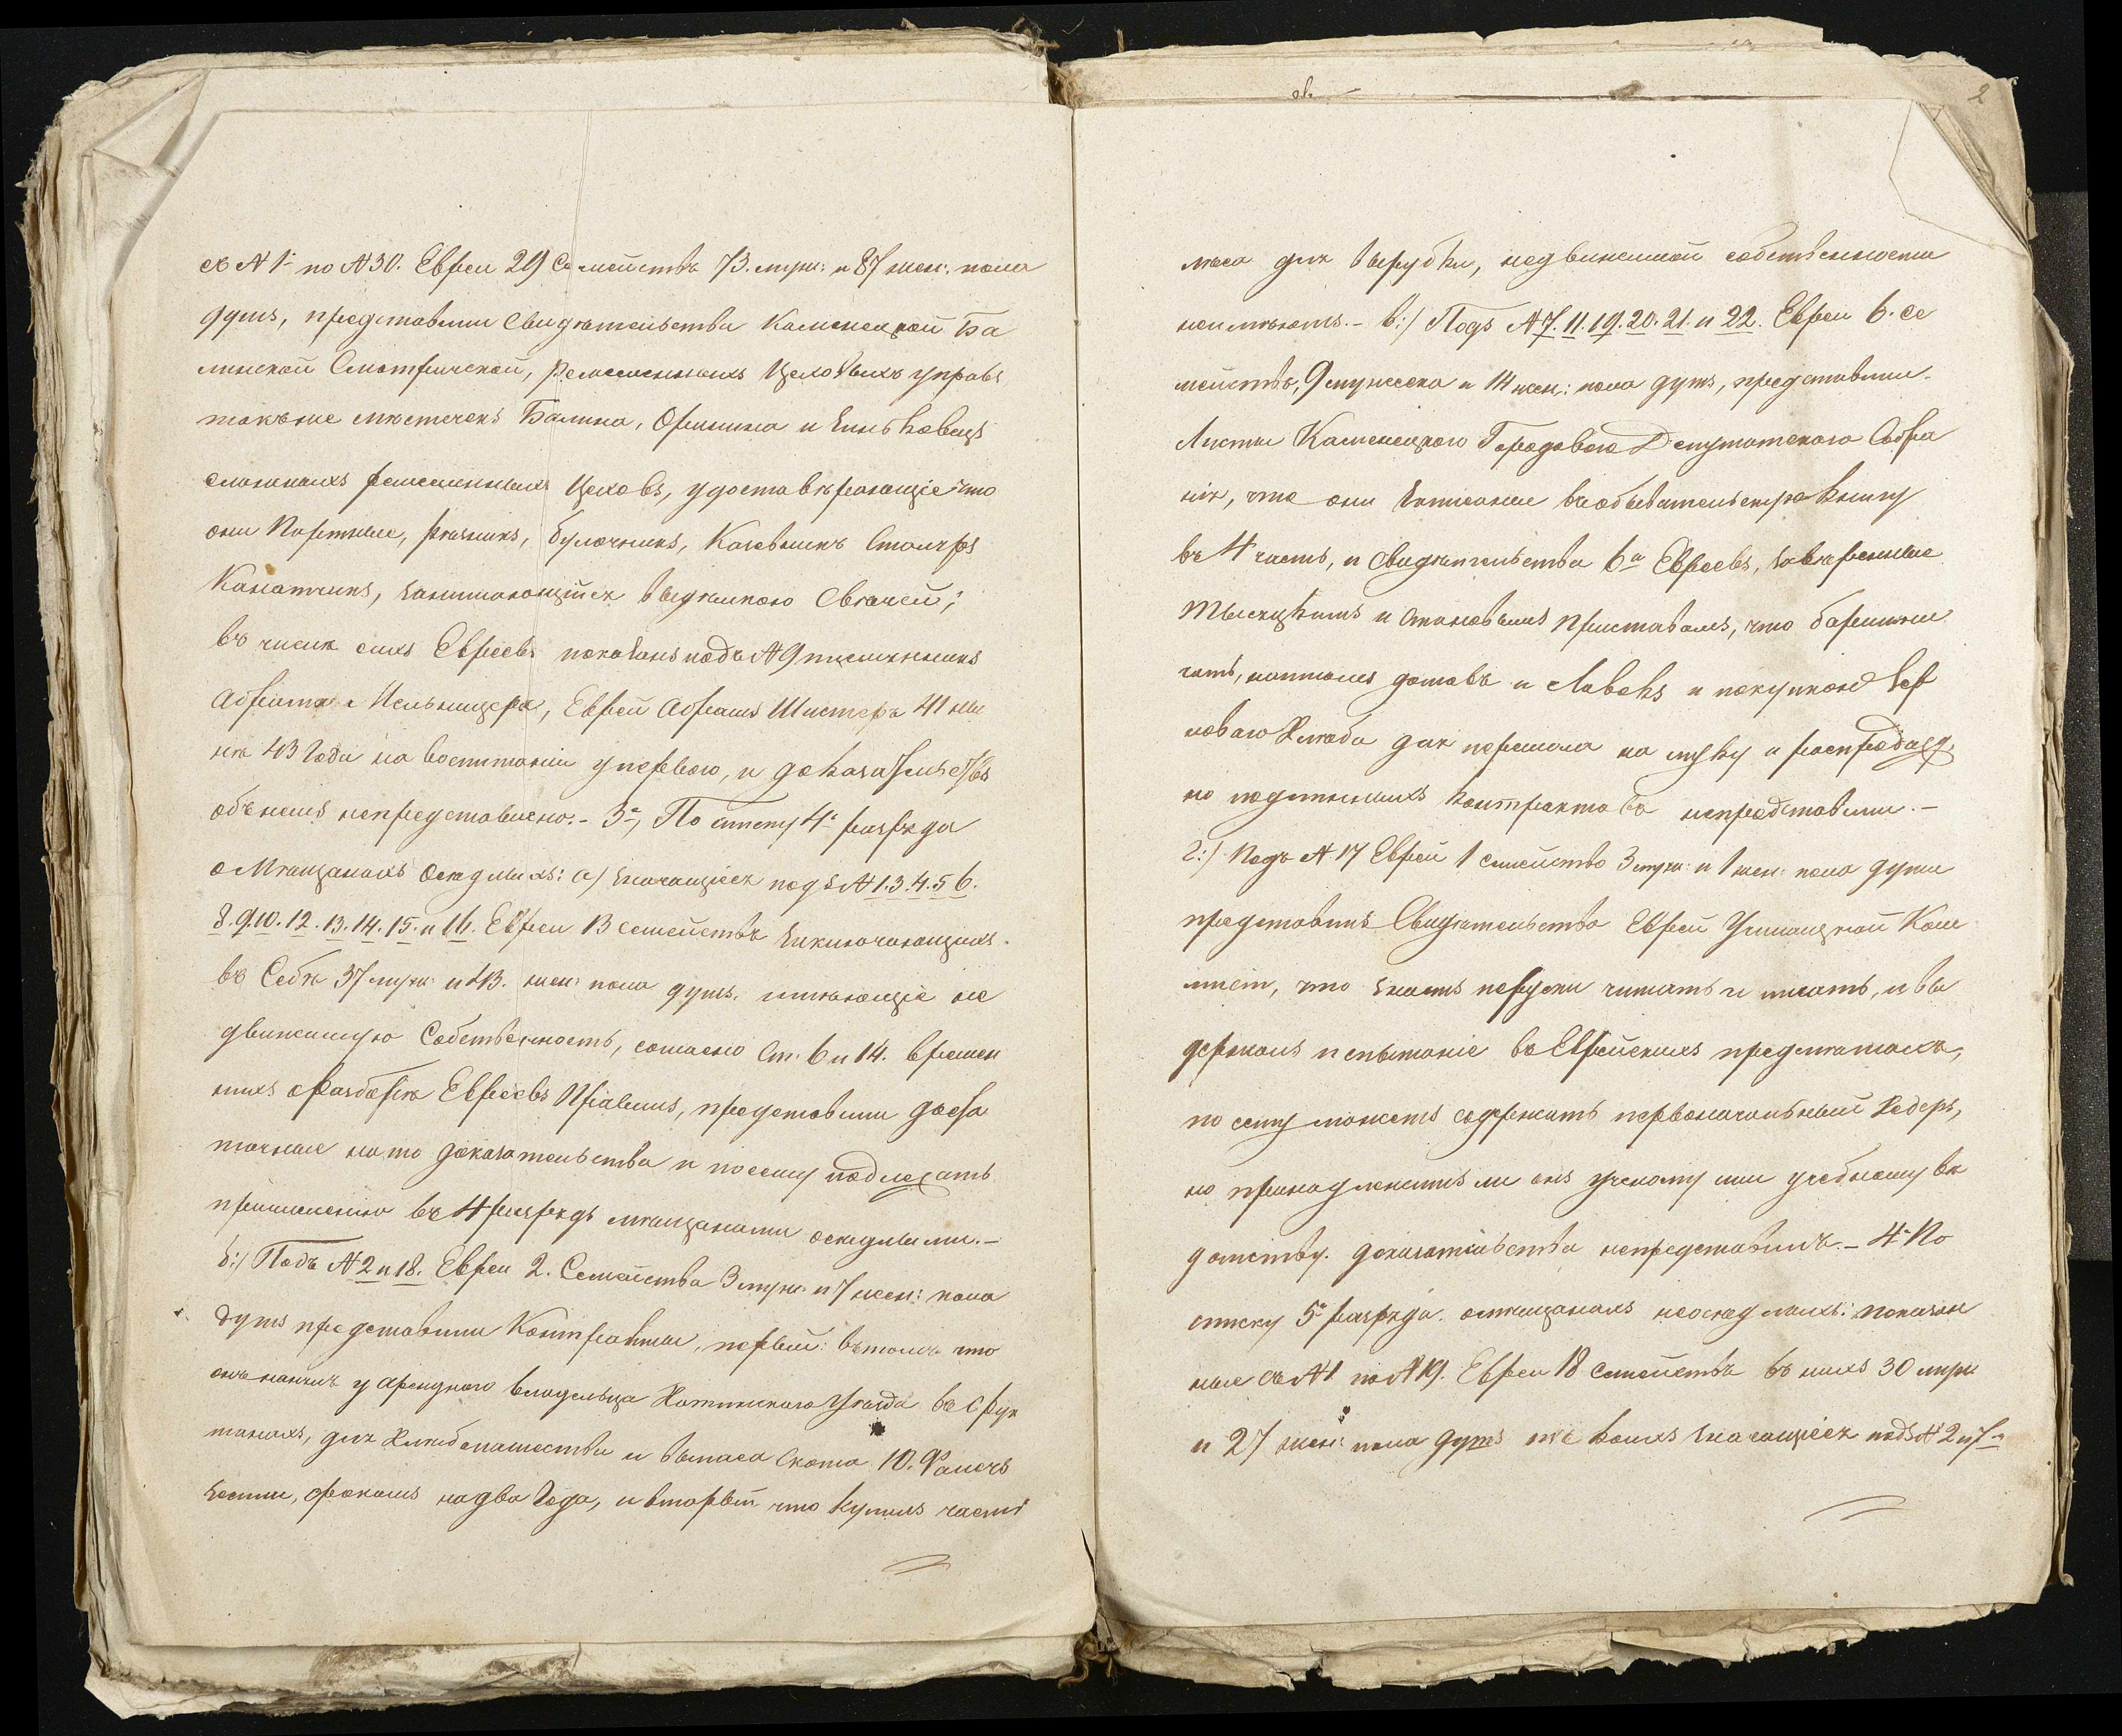 съ № 1. по № 30. Евреи 29 Семействъ 73. муж: и 87 жен: пола
душъ, представили Свидѣтельства Каменецкой Ба
линской Смотричской, Ремесленныхъ Цеховыхъ управъ
такъже мѣстечекъ Балина, Оринина и Зиньковецъ
сложныхъ ремесленныхъ Цеховъ, удостовѣряющіе что
они Портные, рѣзникъ, булочникъ, Столяръ
Канатчикъ, занимающійся выдѣлкою Свѣчей;
въ числѣ сихъ Евреевъ показанъ подъ № 9
Мельницера, Еврей Абрамъ Шистеръ 41
43 года на воспитаніи у перваго, и доказательствъ
объ немъ непредставлено. - 3-е, По списку 4-го разряда
о Мѣщанахъ Осѣдлыхъ: а) значащіеся подъ № 1. 3. 4. 5 6.
8. 9. 10. 12. 13. 14. 15. и 16. Евреи 13 семействъ заключающихъ
въ Себѣ 37 муж: и 43. жен: пола душъ. имѣющіе не
движимую Собственность, согласно Ст. 6 и 14. времен
ныхъ о Разборѣ Евреевъ Правилъ, представили доста
точные на то доказательства и по сему подлежатъ
причисленію въ 4 разрядъ мѣщанами осѣдлыми. -
б:) Подъ № 2 и 18. Евреи 2. Семейства 3 муж: и 7 жен: пола
душъ представили Контракты, первый: въ томъ что
онъ нанялъ у аренднаго владельца Хотинскаго Уѣзда
для хлѣбопашества и выпаса Скота 10. Фалечъ
земли, срокомъ на два Года, и вторый что купилъ часть
лѣса для вырубки, недвижимой собственности
неимѣютъ. - в:) Подъ № 7. 11. 19. 20. 21. и 22. Евреи 6. Се
мействъ, 9 мужеска и 14 жен: пола душъ, представили
Листы Каменецкого Городового Депутатского Собра
нія, что они записаны въ обывательскую книгу
въ 4 часть, и Свидѣтельства 6-и Евреевъ, завѣренные
Тысяцкимъ и становымъ Приставомъ, что
наймомъ домовъ и Лавокъ и покупкою зер
новаго Хлѣба для перемола на муку и распродажу,
но подлинныхъ контрактовъ непредставили. -
г:) Подъ № 17 Еврей 1 семейство 3 муж: и 1 жен: пола души
представилъ Свидѣтельство Еврей Ушицкой
что знаетъ поруски читать и писать, и вы
держалъ испытаніе въ Еврейскихъ предметахъ,
по сему можетъ содержать первоначальный Хедеръ,
но принадлежитъ ли онъ ученому или учебному вѣ
домству. доказательства непредставилъ. - 4-е По
списку 5-го разряда. о мѣщанахъ неосѣдлыхъ: показан
ные съ № 1 по № 19. Евреи 18 семействъ въ нихъ 30 муж
и 27 жен: пола душъ изъ коихъ значащіеся подъ № 2 и 7-м
2